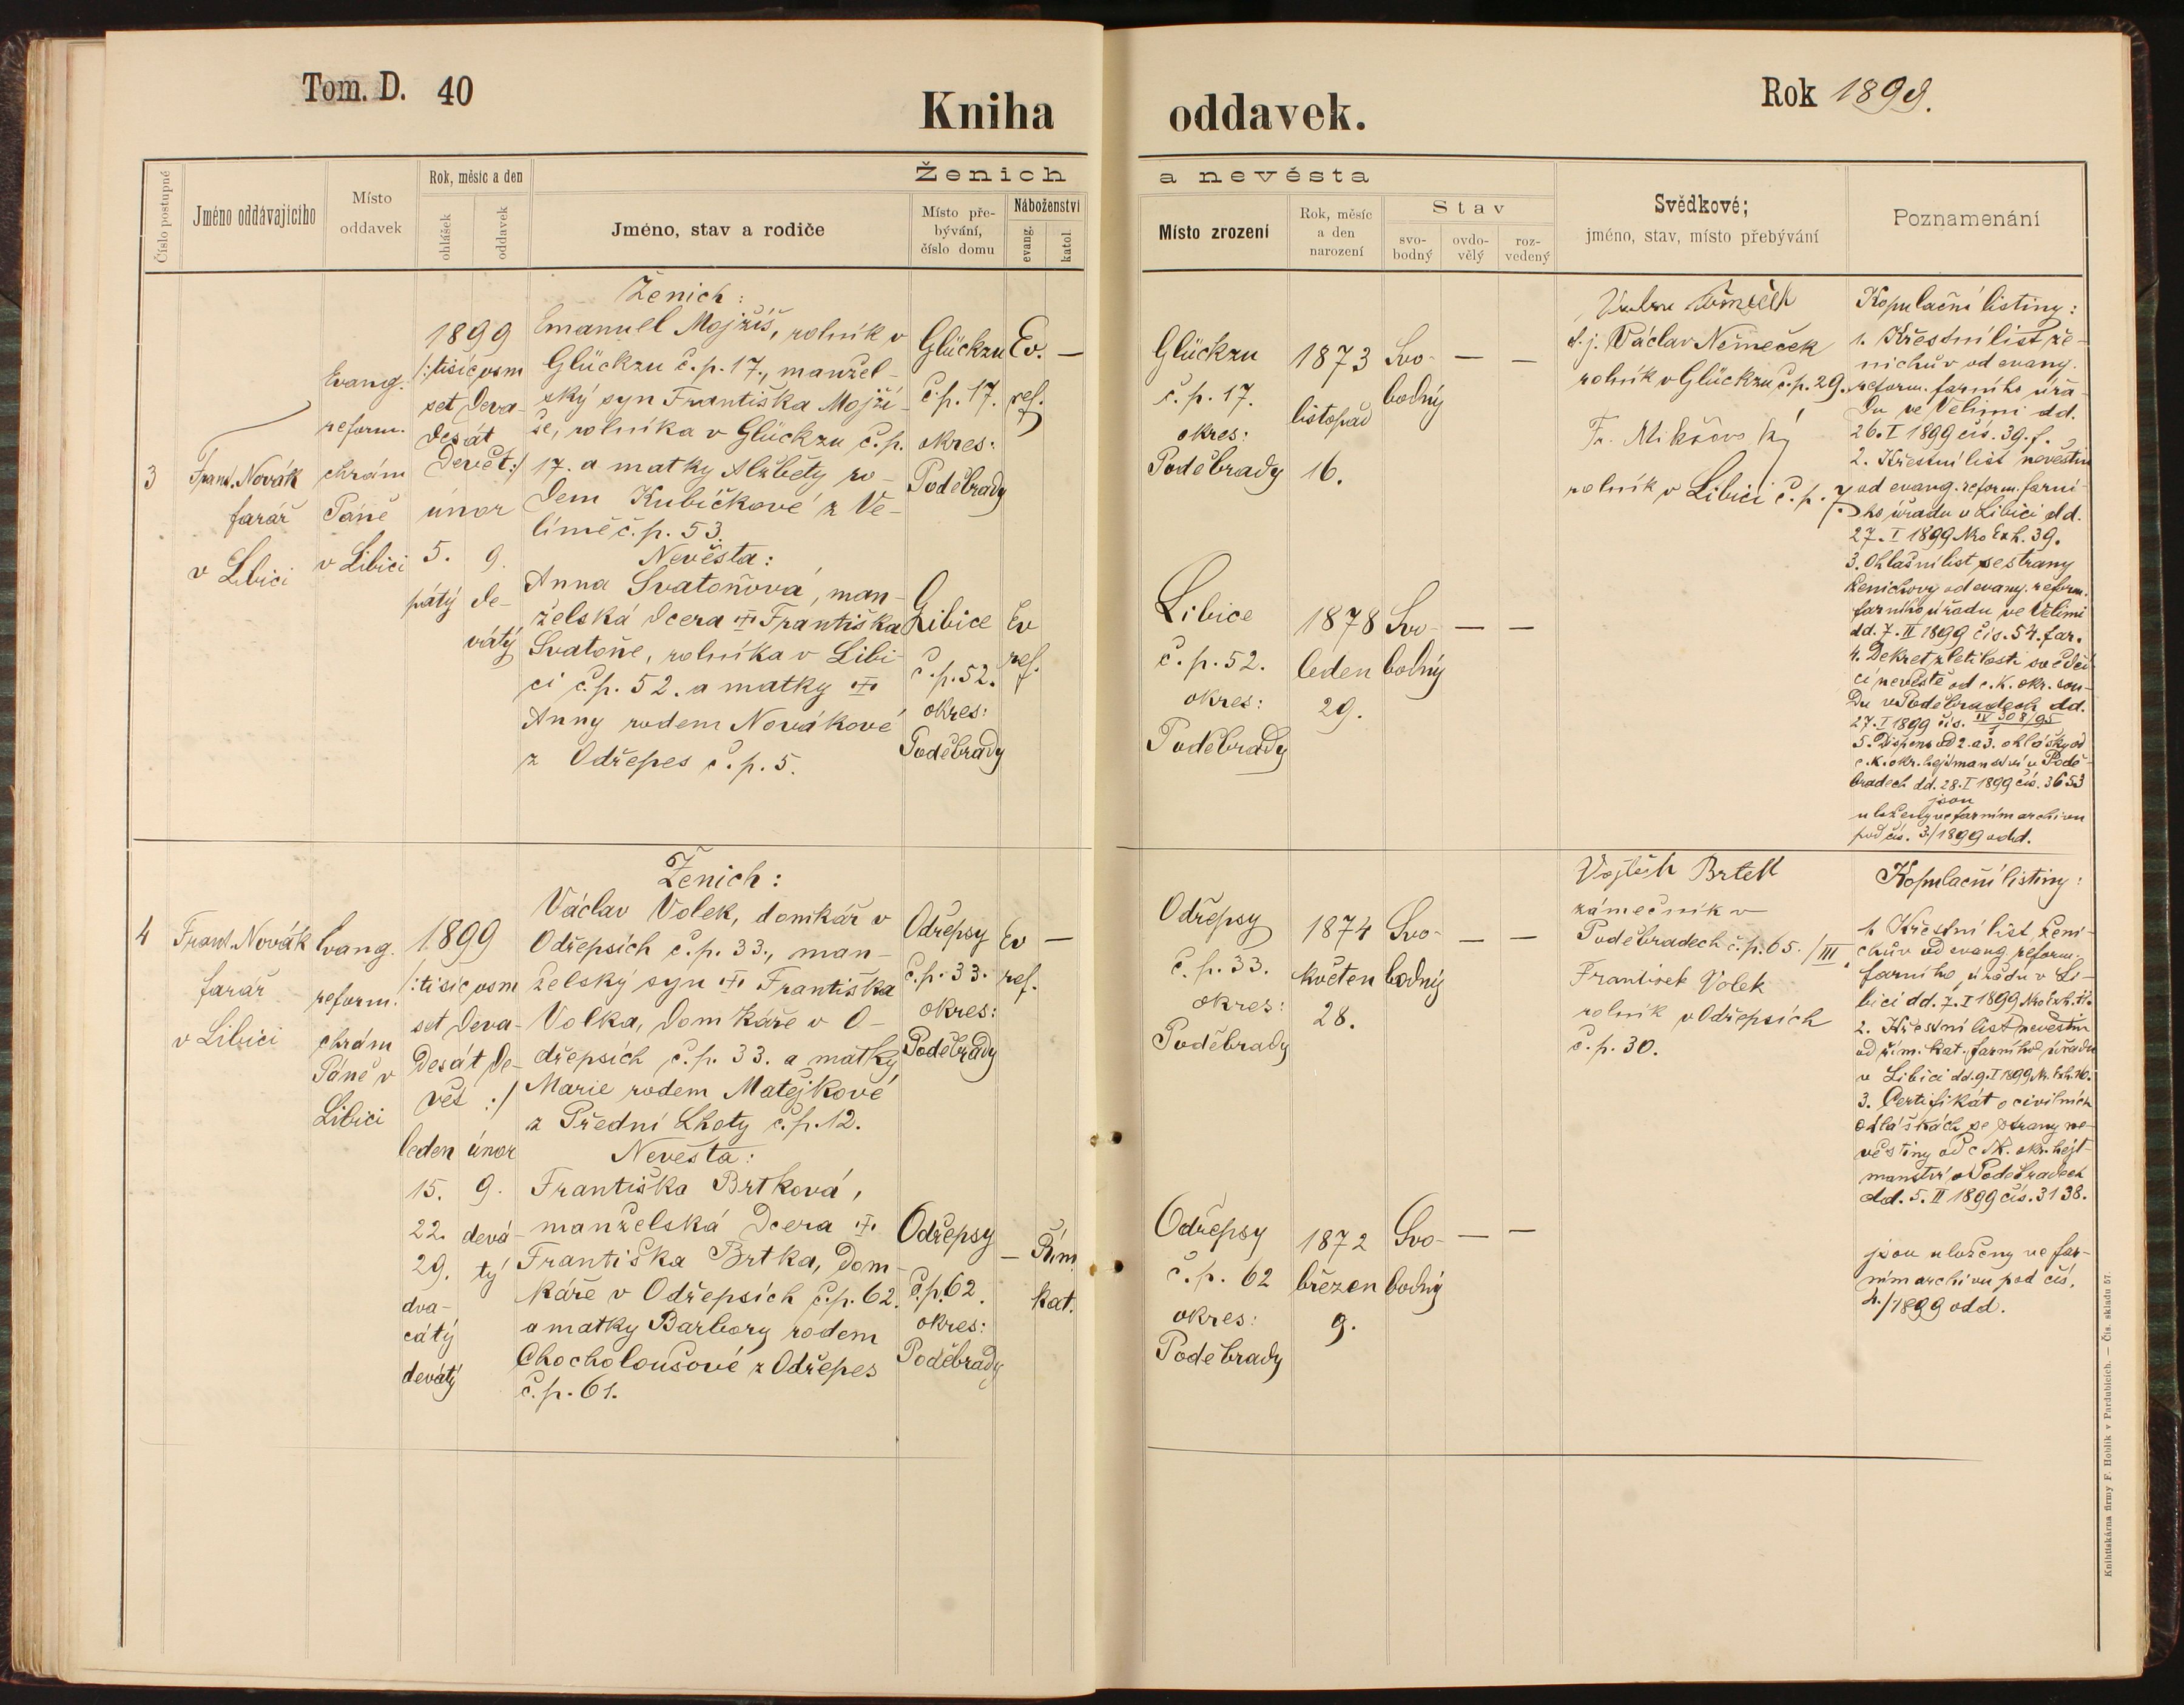 Tom. D. 40
Kniha oddavek.
Rok 1899.
Číslo postupné
Jméno oddávajícího
Místo
oddavek
Rok, měsíc a den
ohlášek
oddavek
Ženich
Jméno, stav a rodiče
Místo pře-
bývání,
číslo domu
Náboženství
evang.
katol.
a nevěsta
Místo zrození
Rok, měsíc
a den
narození
Stav
svo-
bodný
ovdo-
vělý
roz-
vedený
Svědkové;
jméno, stav, místo přebývání
Poznamenání
3
Frant. Novák
farář
v Libici
Evang.
reform.
chrám
Páně
v Libici
1899
/:tisíc osm
set deva-
desát
devět:/
únor
5. 9.
pátý de-
vátý
Ženich:
Emanuel Mojžíš, rolník v
Glückzu č.p. 17., manžel-
ský syn Františka Mojží-
še, rolníka v Glückzu č.p.
17. a matky Alžběty ro-
dem Kubíčkové z Ve-
limě č.p. 53.
Nevěsta:
Anna Svatoňová, man-
želská dcera † Františka
Svatoně, rolníka v Libi-
ci č.p. 52. a matky †
Anny rodem Novákové
z Odřepes č.p. 5.
Glückzu
č.p. 17.
okres:
Poděbrady
Ev.
ref.
—
Libice
č.p. 52.
okres:
Poděbrady
Ev
ref.
Glückzu
č.p. 17.
okres:
Poděbrady
1873
listopad
16.
Svo-
bodný
— —
Libice
č.p. 52.
okres:
Poděbrady
1878
leden
29.
Svo-
bodný
— —
t.j. Václav Němeček
rolník v Glückzu č.p. 29.
Fr. Mikšovský
rolník v Libici č.p. 7.
Kopulační listiny:
1. Křestní list že-
nichův od evang.
reform. farního úřa-
du ve Velimi dd.
26. I 1899 čís. 39. f.
2. Křestní list nevěstin
od evang. reform. farní-
ho úřadu v Libici dd.
27. I 1899 Nro Exh. 39.
3. Ohlašní list se strany
ženichovy od evang. reform.
farního úřadu ve Velimi
dd. 7. II 1899 čís. 54. far.
4. Dekret zletilosti svědčí-
cí nevěstě od c.k. okr. sou-
du v Poděbradech dd.
27. I 1899 čís. IV 308/95
5. Dispens od 2. a 3. ohlášky od
c.k. okr. hejtmanství v Podě-
bradech dd. 28. I 1899 čís. 3653
jsou
uloženy ve farním archivu
pod čís. 3./1899 odd.
4
Frant. Novák
farář
v Libici
Evang.
reform.
chrám
Páně v
Libici
1899
/:tisíc osm
set deva-
desát de-
vět :/
leden únor
15. 9.
22. devá-
29. tý
dva-
cátý
devátý
Ženich:
Václav Volek, domkář v
Odřepsích č.p. 33., man-
želský syn † Františka
Volka, domkáře v O-
dřepsích č.p. 33. a matky
Marie rodem Matějkové
z Přední Lhoty č.p. 12.
Nevěsta:
Františka Brtková,
manželská dcera †
Františka Brtka, dom-
káře v Odřepsích č.p. 62.
a matky Barbory rodem
Chocholoušové z Odřepes
č.p. 61.
Odřepsy
č.p. 33.
okres:
Poděbrady
Ev
ref.
—
Odřepsy
č.p. 62.
okres:
Poděbrady
—
Řím.
kat.
Odřepsy
č.p. 33.
okres:
Poděbrady
1874
květen
28.
Svo-
bodný
— —
Odřepsy
č.p. 62
okres:
Poděbrady
1872
březen
9.
Svo-
bodný
— —
Vojtěch Brtek
zámečník v
Poděbradech č.p. 65./III.
František Volek
rolník v Odřepsích
č.p. 30.
Kopulační listiny:
1. Křestní list ženi-
chův od evang. reform.
farního úřadu v Li-
bici dd. 7. I 1899 Nro Exh. 11.
2. Křestní list nevěstin
od řím. kat. farního úřadu
v Libici dd. 9. I 1899 Nr. Exh. 16.
3. Certifikát o civilních
ohláškách se strany ne-
věstiny od c.k. okr. hejt-
manství v Poděbradech
dd. 5. II 1899 čís. 3138.
jsou uloženy ve far-
ním archivu pod čís.
4./1899 odd.
Knihtiskárna firmy F. Hoblík v Pardubicích. — Čís. skladu 57.